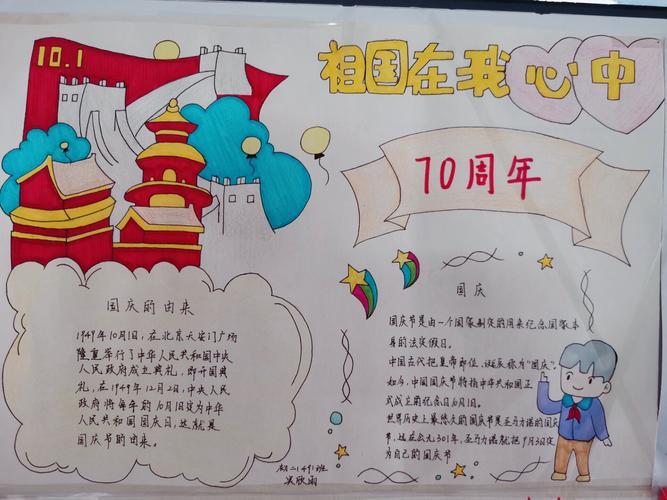 10.1
祖国在我心中
70周年
国庆的由来
1949年10月1日，在北京天安门广场
隆重举行了中华人民共和国中央
人民政府成立典礼，即开国典
礼，在1949年12月2日，中央人民
政府将每年的10月1日定为中华
人民共和国国庆日，这就是
国庆节的由来。
国庆
国庆节是由一个国家制定的用来纪念国家本
身的法定假日。
中国古代把皇帝即位、诞辰称为“国庆”。
如今，中国国庆节特指中华人民共和国正
式成立的纪念日10月1日。
世界历史上最悠久的国庆节是圣马力诺的国庆
节，远在公元301年，圣马力诺就把9月3日定
为自己的国庆节
1491班
吴欣雨